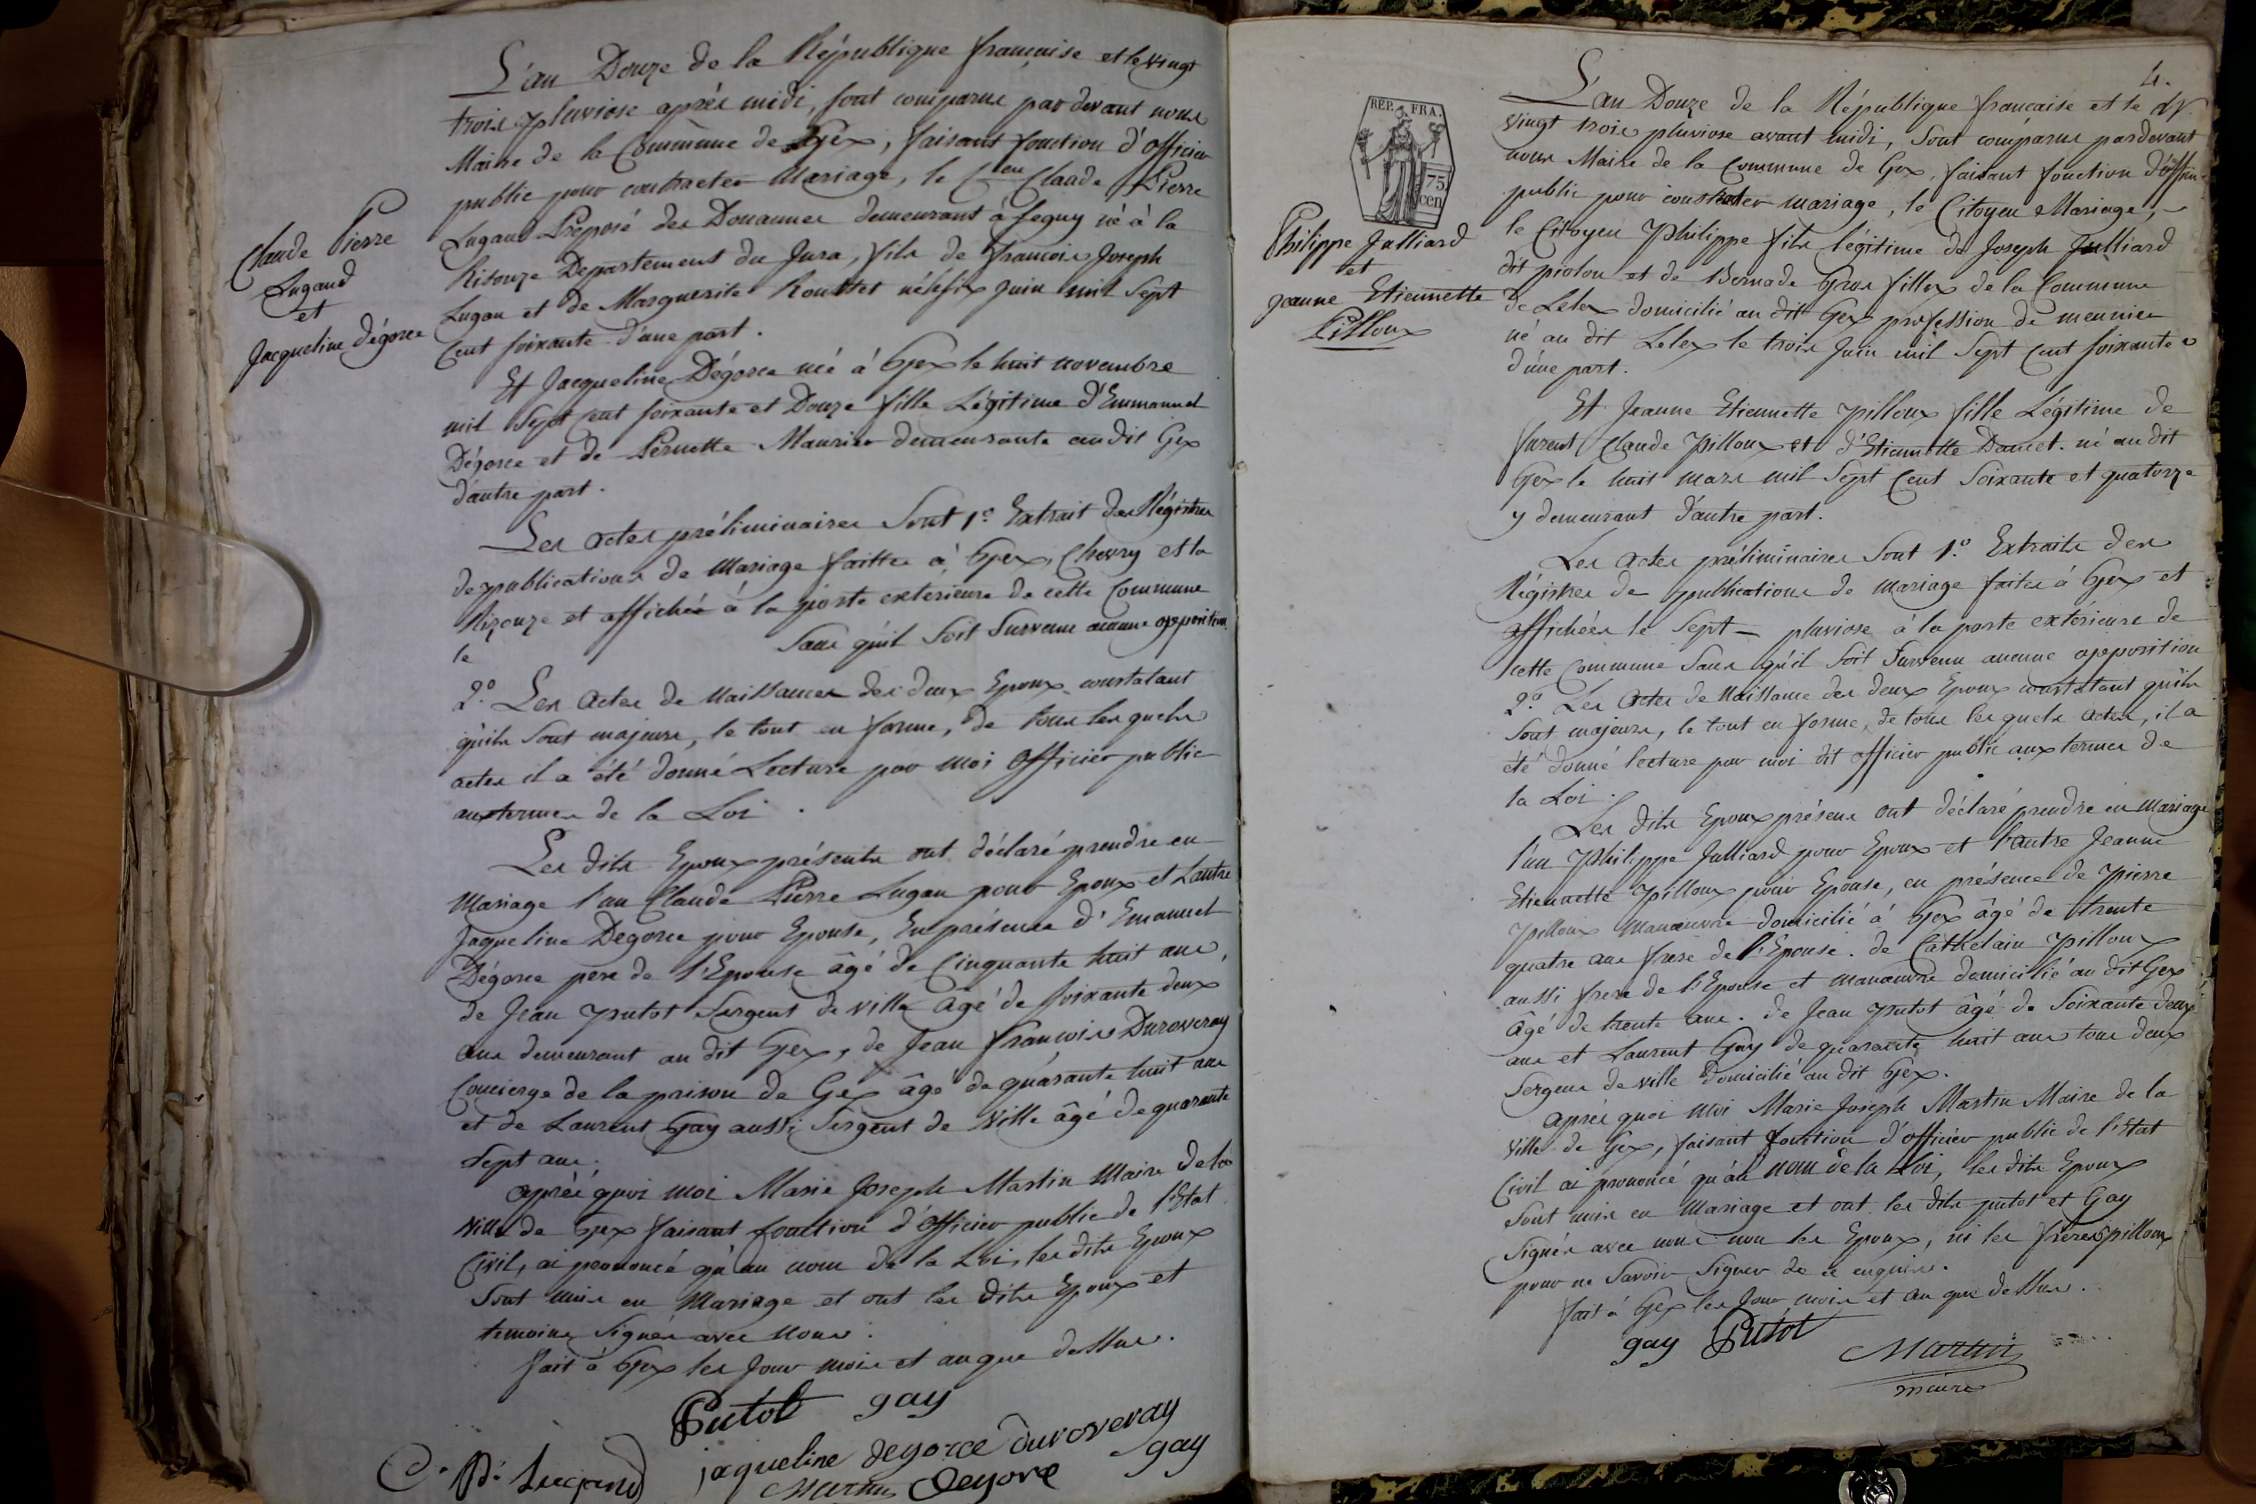 L'an Douze de la République française et le vingt
trois pluviose après midi, sont comparus par devant nous
Maire de la Commune de Gex, faisant fonction d'officier
public pour contracter Mariage, le Cen Claude Pierre
Lugand Préposé des Douannes demeurant à Segny né à la
Rixouze Departement du Jura, fils de francois Joseph
Lugan et de Marguerite né le six juin mil Sept
Cent soixante d'une part.
Claude Pierre
Lugand
et
Jacqueline Dégorce
Et Jacqueline Dégorce née à Gex le huit novembre
mil Sept Cent soixante et Douze fille Légitime d'Emmanuel
Dégorce et de Pernette Maurier demeurante au dit Gex
d'autre part.
Les actes préliminaires Sont 1.° Extrait des Régistres
de publications de Mariage faittes à Gex, Chevry et la
Rizouze et affichée à la porte exterieure de cette Commune
le Sans qu'il Soit Survenu aucune opposition
2.° Les actes de Naissances des deux Epoux constatant
qu'ils Sont majeurs, le tout en forme, de tous les quels
actes il a été donné Lecture par moi officier public
aux termes de la Loi.
Les dits Epoux présents ont déclaré prendre en
Mariage l'un Claude Pierre Lugan pour Epoux et Lautre
Jaqueline Degorce pour Epouse, En présence d'Emanuel
Dégorce pere de l'Epouse âgé de Cinquante huit ans,
de Jean Putot Sergent de ville âgé de soixante deux
ans demeurant au dit Gex, de Jean francois Duroveray
Concierge de la prison de Gex âgé de quarante huit ans
et de Laurent Gay aussi Sergent de Ville âgé de quarante
sept ans.
après quoi moi Marie Joseph Martin Maire de la
Ville de Gex faisant fonction d'officier public de l'Etat
Civil, ai prononcé qu'au nom de la Loi, les dits Epoux
Sont unis en Mariage et ont les dits Epoux et
temoins Signés avec Nous.
fait à Gex les Jour mois et an que dessus.
Putot gay
C. P. Lugand jaqueline degorce duroveray
Martin Degorce gay
4.
REP. FRA.
75
cen
L'an Douze de la République francaise et le
vingt trois pluviose avant midi, Sont comparus pardevant
nous Maire de la Commune de Gex, faisant fonction d'officier
public pour contracter mariage, le Citoyen Mariage,
le Citoyen Philippe fils légitime de Joseph Julliard
dit piolon et de Bernade Gros fillex de la Commune
de Lelex domicilié au dit Gex profession de meunier
né au dit Lelex le trois Juin mil Sept Cent soixante
d'une part.
Philippe Julliard
et
jeanne Etiennette
Pilloux
Et Jeanne Etiennette Pilloux fille Légitime de
furent Claude Pilloux et d'Etiennette Dancet. né au dit
Gex le huit mars mil Sept Cent Soixante et quatorze
y demeurant d'autre part.
Les actes préliminaires Sont 1.° Extraits des
Régistres de publications de mariage faites à Gex et
affichées le Sept pluviose à la porte extérieure de
cette Commune Sans qu'il Soit Survenu aucune opposition
2.° Les actes de Naissance des deux Epoux constatant qu'ils
Sont majeurs, le tout en forme, de tous les quels actes, il a
été donné lecture par moi dit officier public aux termes de
la Loi.
Les dits Epoux présens ont déclaré prendre en Mariage
l'un Philippe Julliard pour Epoux et l'autre Jeanne
Etiennette Pilloux pour Epouse, en présence de Pierre
Pilloux manœuvre domicilié à Gex âgé de trente
quatre ans frere de l'Epouse. de Cathelain Pilloux
aussi frere de l'Epouse et manœuvre domicilié au dit Gex
âgé de trente ans. de Jean Putot âgé de Soixante deux
ans et Laurent Gay de quarante huit ans tous deux
Sergens de ville domicilié au dit Gex.
après quoi moi Marie Joseph Martin Maire de la
Ville de Gex, faisant fonction d'officier public de l'Etat
Civil ai prononcé qu'au nom de la Loi, les dits Epoux
Sont unis en Mariage et ont les dits putot et Gay
Signés avec nous non les Epoux, ni les frères Pilloux
pour ne Savoir Signer de ce enquis.
fait à Gex les Jour mois et an que dessus.
gay Putot
Martin
maire